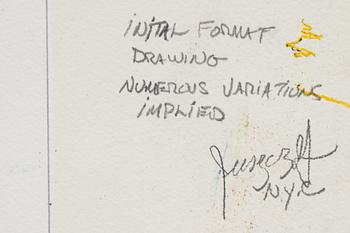 INITAL FORMAT
DRAWING
NUMEROUS VARIATIONS
IMPLIED
NYC